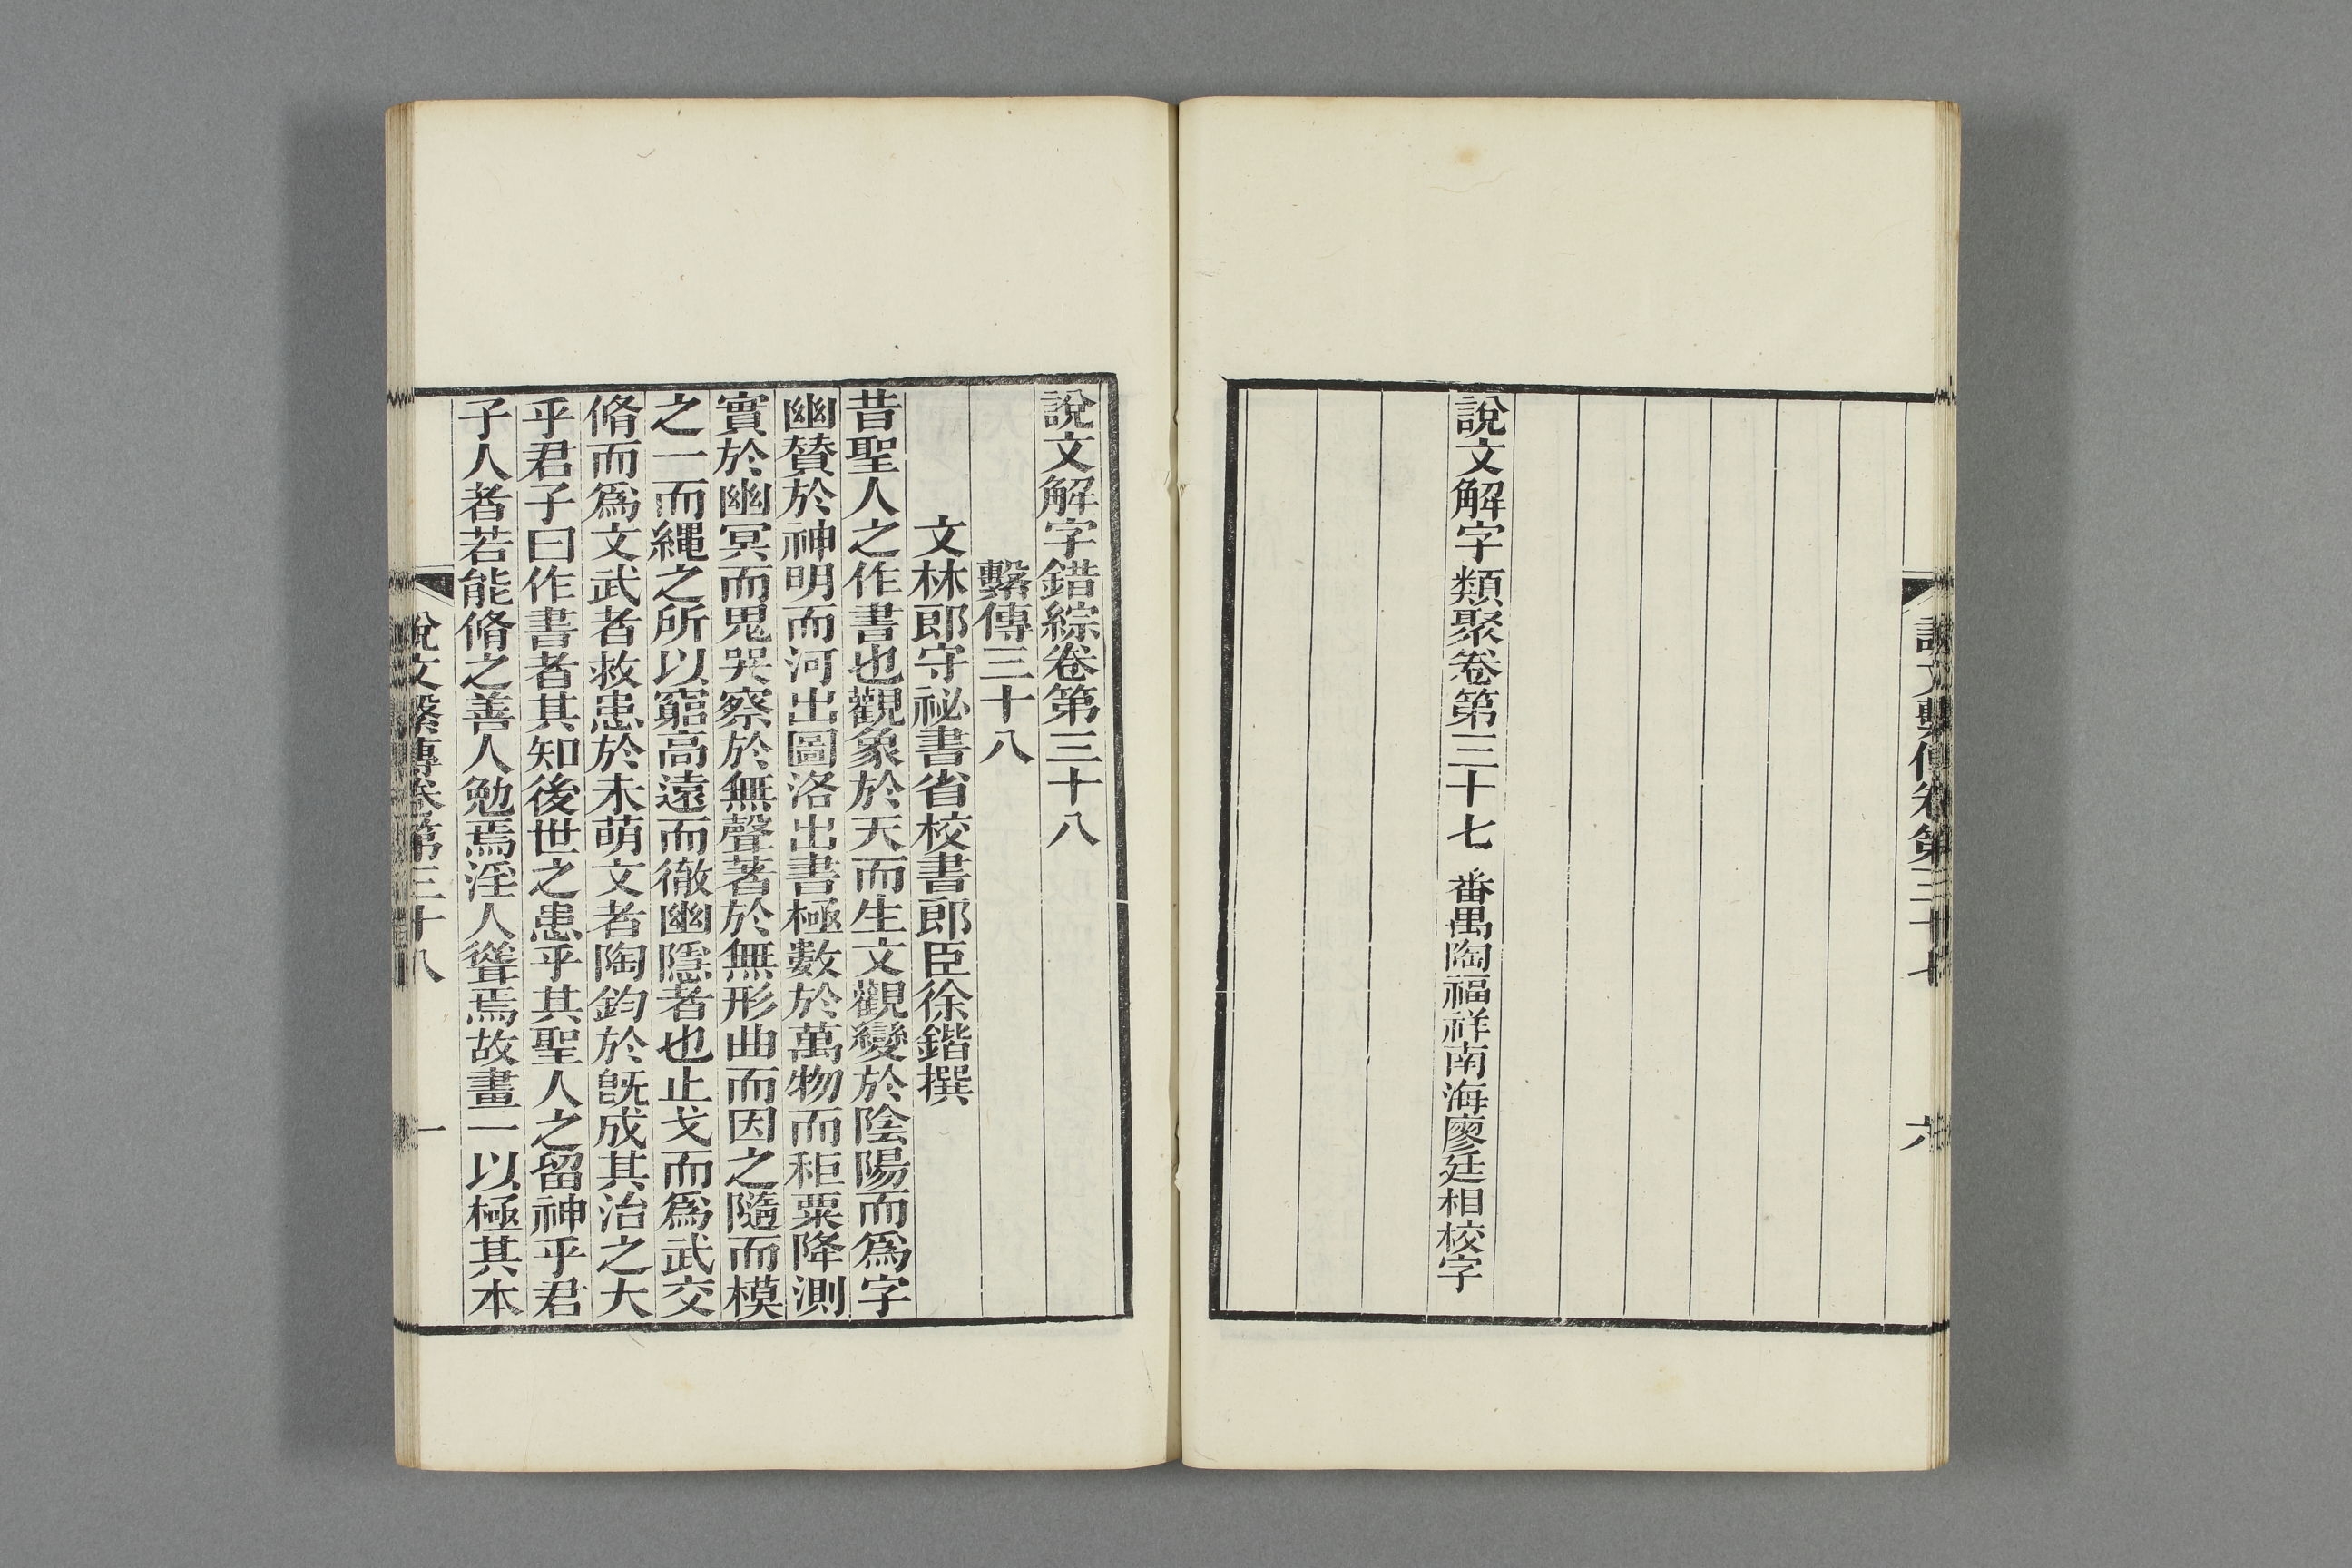 說文繫傳卷第三十七
六
說文解字類聚卷第三十七 番禺陶福祥南海廖廷相校字
說文解字錯綜卷第三十八
繫傳三十八
文林郎守祕書省校書郎臣徐鍇撰
昔聖人之作書也觀象於天而生文觀變於陰陽而爲字
幽贊於神明而河出圖洛出書極數於萬物而秬粟降測
實於幽冥而鬼哭察於無聲著於無形曲而因之隨而模
之一而繩之所以窮高遠而徹幽隱者也止戈而爲武交
脩而爲文武者救患於未萌文者陶鈞於旣成其治之大
乎君子曰作書者其知後世之患乎其聖人之留神乎君
子人者若能脩之善人勉焉淫人聳焉故畫一以極其本
說文繫傳卷第三十八
一